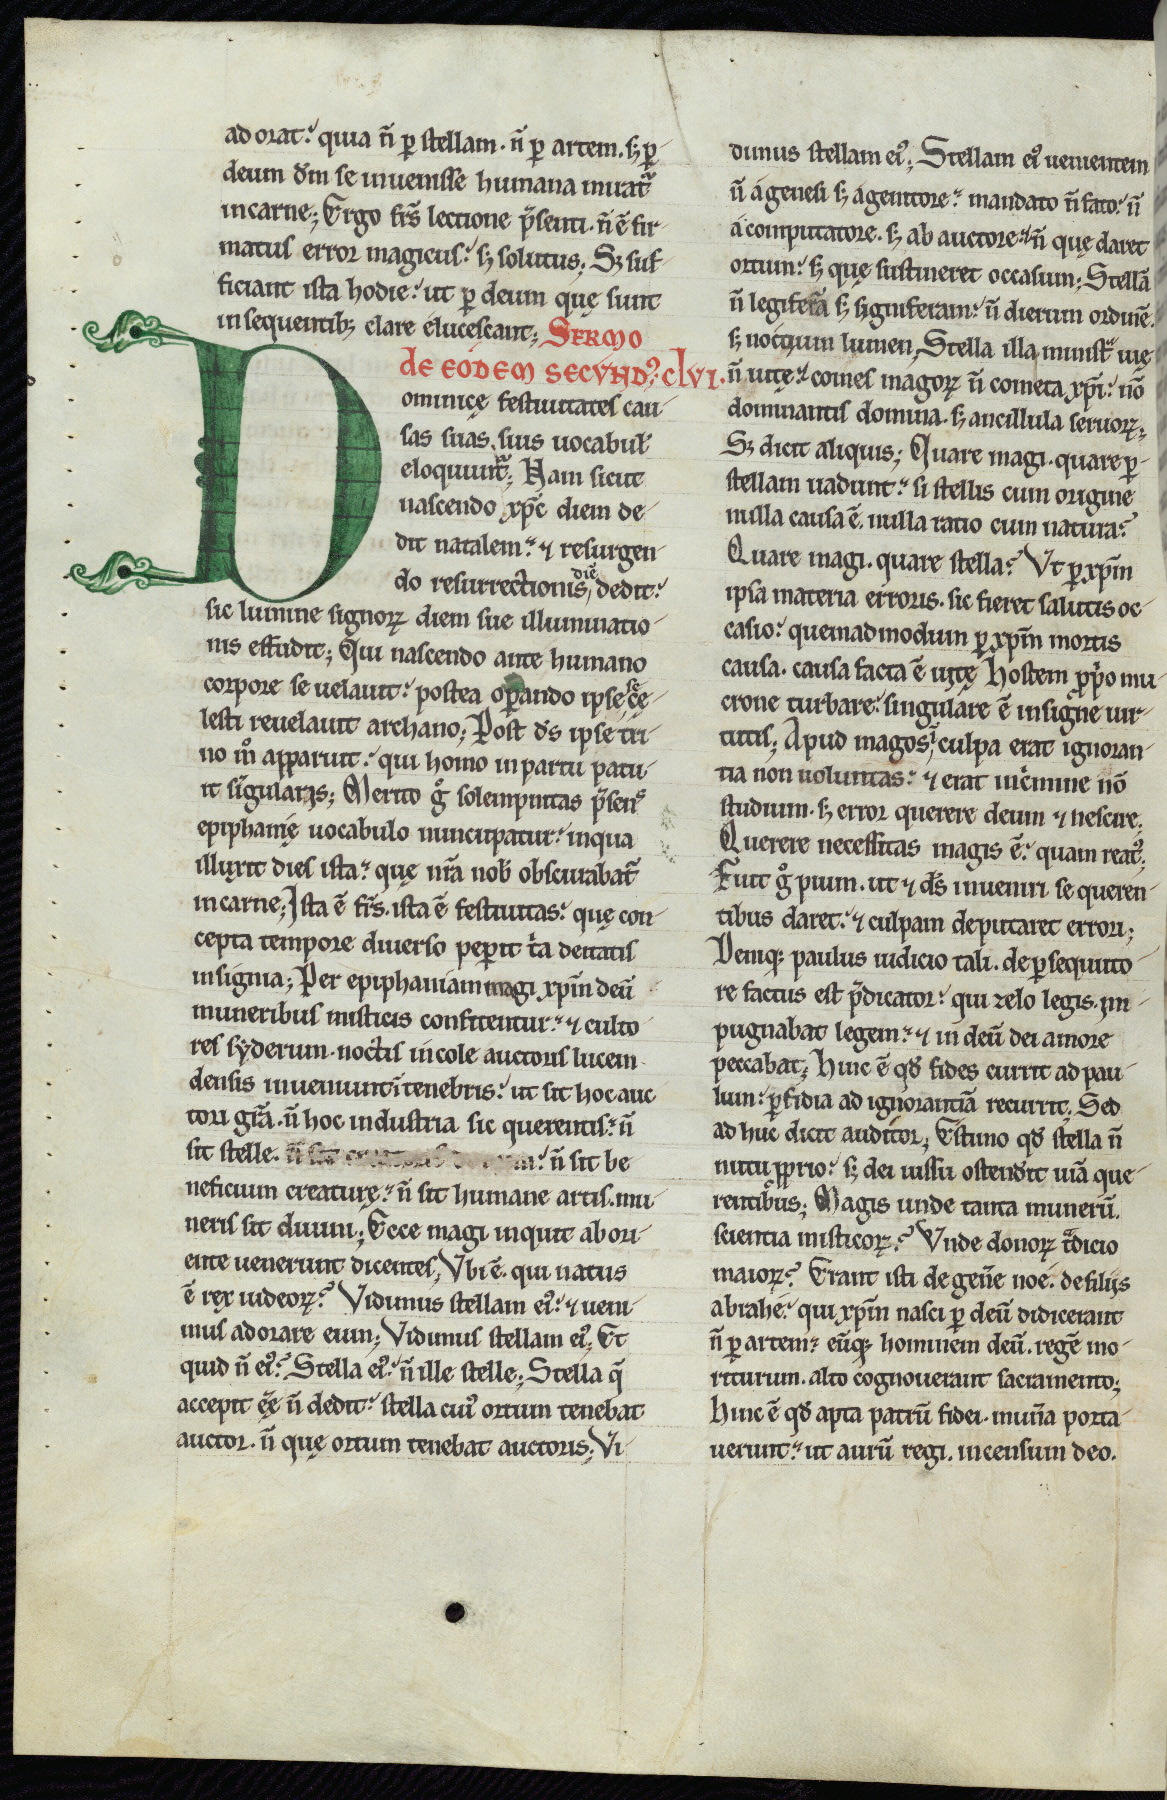 adorat. quia ñ ꝑ stellam. ñ ꝑ artem. sꝫ ꝑ
deum dm̄ se inuenisse humana iurat̃
in carne; Ergo frs̄ lectione p̃senti. ñ ē fir
matus error magicus. sꝫ solutus; Sꝫ suf
ficiant ista hodie. ut ꝑ deum quę sunt
in sequentibꝫ clare elucescant; Sermo
de eodem secundꝰ. clvi.
Dominicę festiuitates cau
sas suas. suis uocabul̃
eloquunt̃; Nam sicut
nascendo xp̄c diem de
dit natalem. ⁊ resurgen
do resurrectionis diē dedit.
sic lumine signoꝝ diem sue illuminatio
nis effudit; Qui nascendo ante humano
corpore se uelauit. postea oꝑando ipse se cę
lesti reuelauit archano; Post ds̄ ipse tri
no m̊ apparuit. qui homo in partu patu
it singularis; Merito g̊ solempnitas p̃sens
epiphanię uocabulo nuncupatur. in qua
illuxit dies ista. quę nr̄a nob̄ obscurabat̃
in carne; Ista ē frs̄. ista ē festiuitas. quę con
cepta tempore diuerso peperit t̃a deitatis
insignia; Per epiphaniam magi xp̄m deū
muneribus misticis confitentur. ⁊ culto
res syderum. noctis incole auctoris lucem
densis inueniunt ī tenebris. ut sit hoc auc
tori gr̄a. ñ hoc industria sic querentis. ñ
sit stelle. ñ sit be
neficium creaturę. ñ sit humane artis. mu
neris sit diuini; Ecce magi inquit ab ori
ente uenerunt dicentes; Vbi ē. qui natus
ē rex iudeoꝝ? Vidimus stellam eiꝰ. ⁊ ueni
mus adorare eum; Vidimus stellam eiꝰ; Et
quid ñ eiꝰ? Stella eiꝰ. ñ ille stelle; Stella q̄
accepit eē ñ dedit. stella cuiꝰ ortum tenebat
auctor. ñ quę ortum tenebat auctoris; Vi
dimus stellam eiꝰ; Stellam eiꝰ uenientem
ñ a genesi sꝫ a genitore. mandato ñ fato. ñ
a computatore. sꝫ ab auctore. ñ quę daret
ortum. sꝫ quę sustineret occasum; Stellā
ñ legiferā sꝫ signiferam. ñ dierum ordinē.
sꝫ noctium lumen; Stella illa minist̃ uię
ñ uitę. comes magoꝝ ñ cometa xp̄i. nō
dominantis domina. sꝫ ancillula seruoꝝ;
Sꝫ dicit aliquis; Quare magi. quare ꝑ
stellam uadunt. si stellis cum origine
nulla causa ē. nulla ratio cum natura?
Quare magi. quare stella? Vt ꝑ xp̄m
ipsa materia erroris. sic fieret salutis oc
casio. quemadmodum ꝑ xp̄m mortis
causa. causa facta ē uitę. Hostem ꝓprio mu
crone turbare. singulare ē insigne uir
tutis; Apud magos ī culpa erat ignoran
tia non uoluntas. ⁊ erat in crimine nō
studium. sꝫ error querere deum ⁊ nescire.
Querere necessitas magis ē. quam reatꝰ;
Fuit g̊ pium. ut ⁊ ds̄ inueniri se queren
tibus daret. ⁊ culpam deputaret errori;
Deniqꝫ paulus iudicio tali. de ꝑsequuto
re factus est p̃dicator. qui zelo legis. im
pugnabat legem. ⁊ in deū dei amore
peccabat; Hinc ē qd̄ fides currit ad pau
lum. ꝑfidia ad ignorantiā recurrit; Sed
ad huc dicit auditor; Estimo qd̄ stella ñ
nutu ꝓprio. sꝫ dei iussu ostendit uiā que
rentibus; Magis unde tanta munerū.
scientia misticoꝝ? Vnde donoꝝ t̃dicio
maioꝝ? Erant isti de gen̄e noe. de filiis
abrahe. qui xp̄m nasci ꝑ deū didicerant
ñ ꝑ artem. eūqꝫ hominem deū. regē mo
riturum. alto cognouerant sacramento;
Hinc ē qd̄ apta patrū fidei. mun̄a porta
uerunt. ut aurū regi. incensum deo.